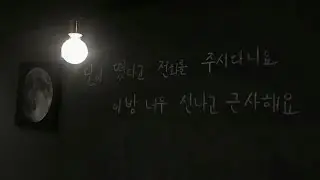 달이 떴다고 전화를 주시다니요
이 밤 너무 신나고 근사해요